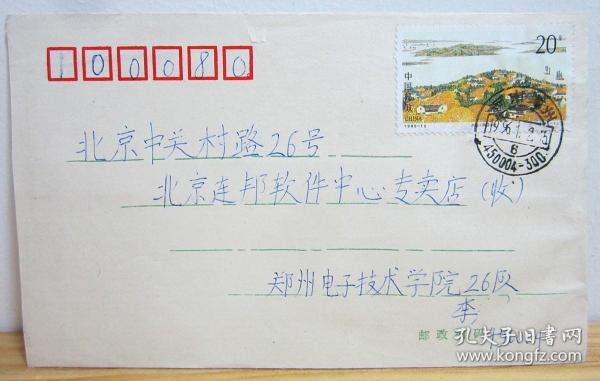 100080
20分
中国邮政
CHINA
1995-12
1996.1.2.15
6
450004-300
北京中关村路26号
北京连邦软件中心专卖店(收)
郑州电子技术学院26队
李
邮政
孔夫子旧书网
www.kongfz.com